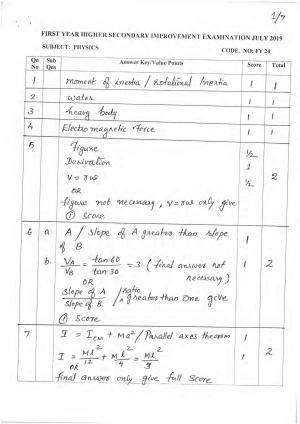 1/7
FIRST YEAR HIGHER SECONDARY IMPROVEMENT EXAMINATION JULY 2019
SUBJECT: PHYSICS CODE. NO: FY 24
Qn No Sub Qns Answer Key/Value Points Score Total
1 moment of inertia / Rotational Inertia 1 1
2 water 1 1
3 heavy body 1 1
4 Electromagnetic Force 1 1
5 Figure ½
Derivation 1
V = rω ½ 2
OR
figure not necessary, V = rω only give
① score
6 a. A / slope of A greater than slope
of B 1
b. VA/VB = tan 60/tan 30 = 3 (final answer not 1 2
necessary)
OR
slope of A/slope of B / ratio greater than one give
① score
7 I = ICM + Ma² / Parallel axes theorem 1
I = Ml²/12 + Ml²/4 = Ml²/3 1 2
OR
final answer only give full score